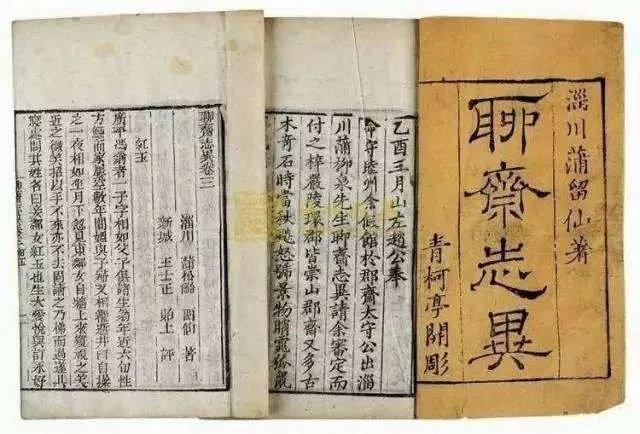 淄川蒲留仙著
聊齋志異
青柯亭開雕
乙酉三月山左趙公奉
命守睦州余假館於郡齋太守公出淄
川蒲柳泉先生聊齋志異請余審定而
付之梓嚴陵環郡皆崇山郡齋又多古
木奇石時當秋飇怒號景物睄窱狐鼠
聊齋志異卷三
淄川 蒲松齡 留仙 著
新城 王士正 貽上 評
紅玉
廣平馮翁者一子字相如父子俱諸生翁年近六旬性
方鯁而家屢空數年間媼與子婦又相繼逝井臼自操
之一夜相如坐月下忽見東鄰女自牆上來窺視之美
近之微笑招以手不來亦不去固請之乃梯而過遂共
寢處問其姓名曰妾鄰女紅玉也生大愛悅與訂永好